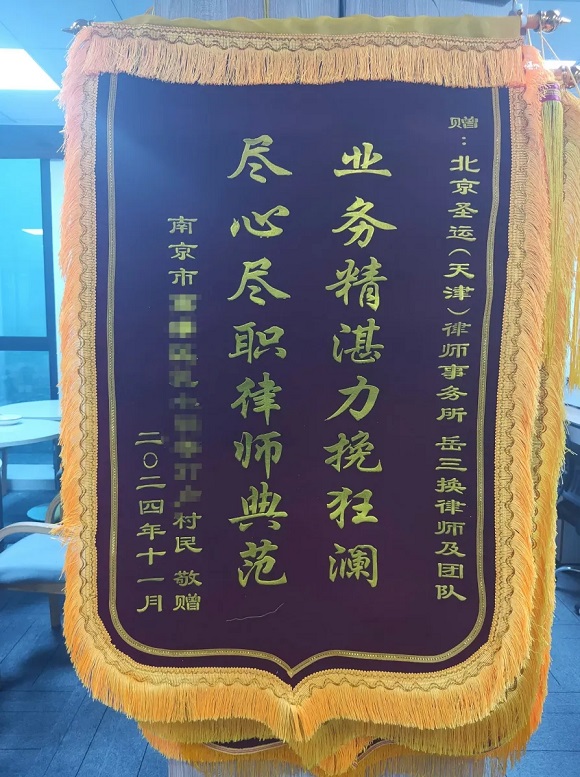 赠：北京圣运（天津）律师事务所 岳三换律师及团队
业务精湛力挽狂澜
尽心尽职律师典范
南京市 村民 敬赠
二〇二四年十一月